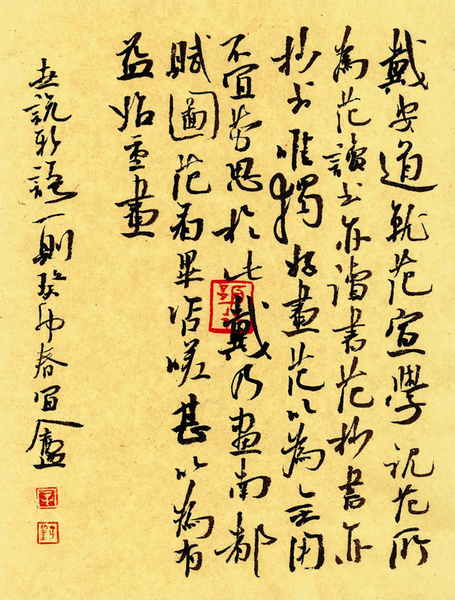 戴安道就范宣學視范所
為范讀书亦讀書范抄書亦
抄书唯獨好畫范以為無用
不宜勞思於此戴乃畫南都
賦圖范看畢咨嗟甚以為有
益始重畫
世說新語一則癸卯春宜盦